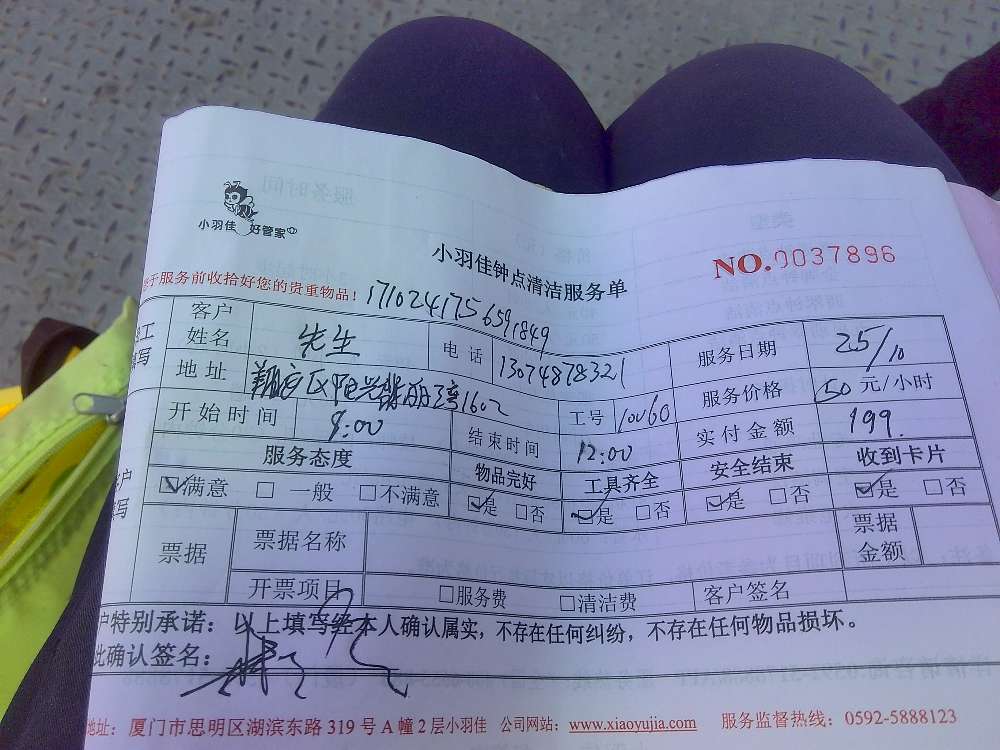 小羽佳 好管家
小羽佳钟点清洁服务单
NO.0037896
于服务前收拾好您的贵重物品！ 1710241756591849
工 填写
客户姓名 先生 电话 13074878321 服务日期 25/10
地址 翔安区阳光 1602 工号 10060 服务价格 50 元/小时
开始时间 9:00 结束时间 12:00 实付金额 199.
服务态度 物品完好 工具齐全 安全结束 收到卡片
客户 填写
☑满意 □ 一般 □不满意 ☑是 □否 ☑是 □否 ☑是 □否 ☑是 □否
票据 票据名称 票据金额
开票项目 □服务费 □清洁费 客户签名
户特别承诺：以上填写经本人确认属实，不存在任何纠纷，不存在任何物品损坏。
此确认签名：
地址：厦门市思明区湖滨东路 319 号 A 幢 2 层小羽佳 公司网站：www.xiaoyujia.com 服务监督热线：0592-5888123